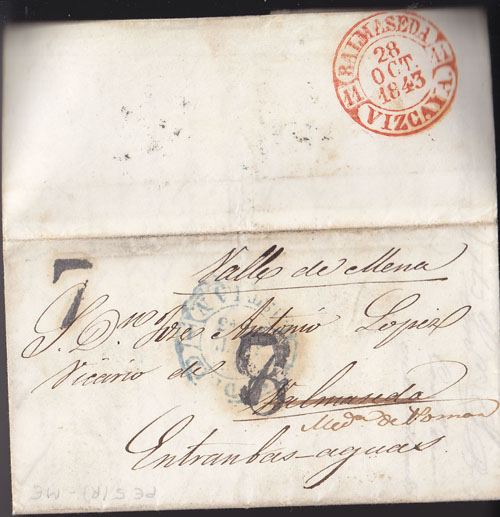 BALMASEDA
11 28 11
OCT.
1843
VIZCAYA
Valle de Mena
S. Dn. José Antonio Lopez
Vicario de Valmaseda
Meda de Poman
Entranbas-aguas
PE 5 (R) - ME